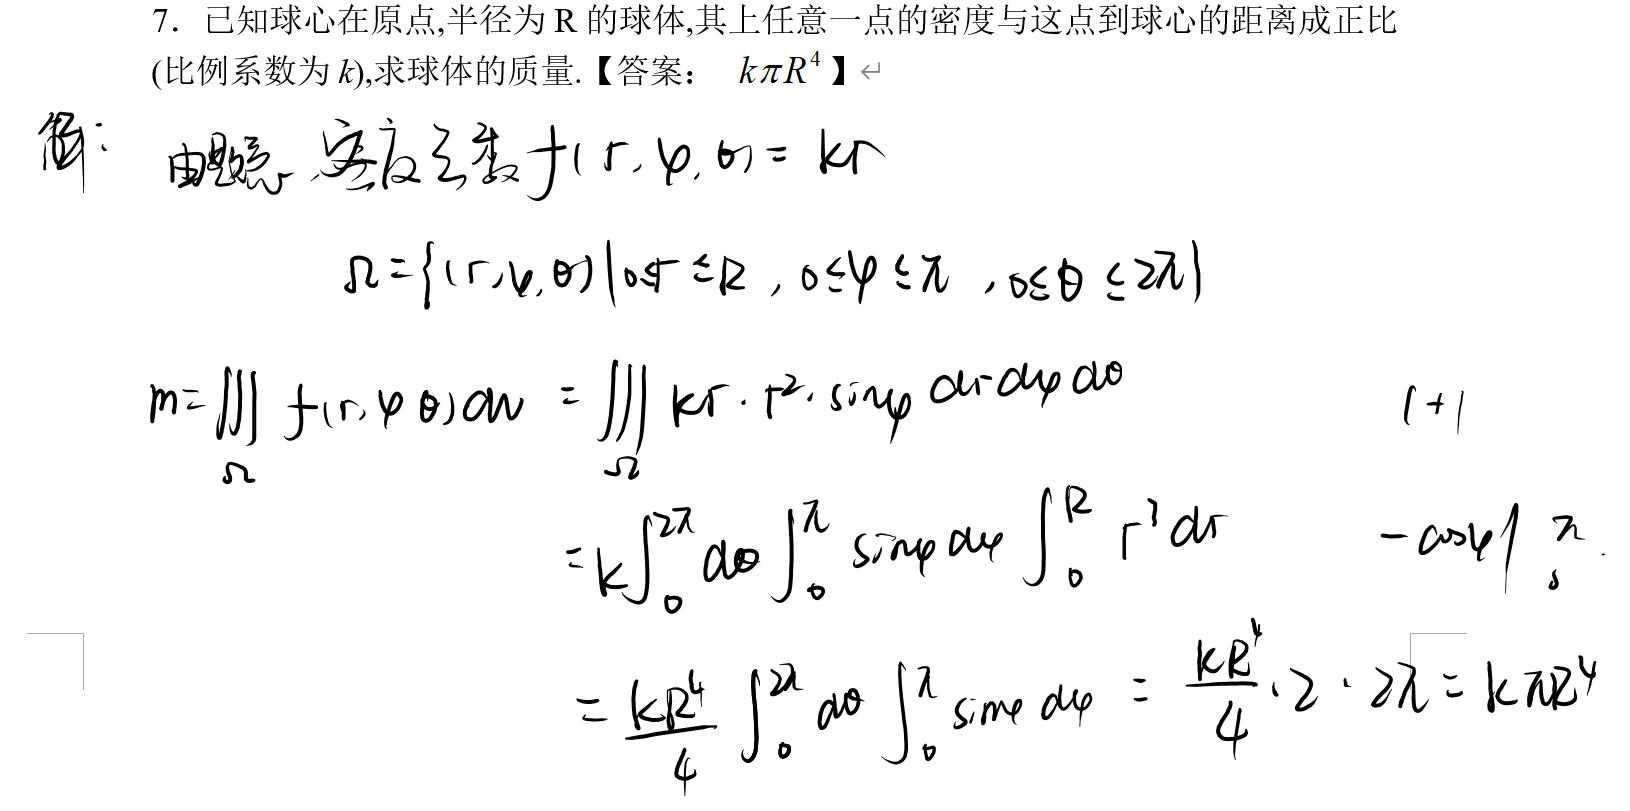 7. 已知球心在原点,半径为 R 的球体,其上任意一点的密度与这点到球心的距离成正比
(比例系数为 k),求球体的质量.【答案: kπR⁴ 】↵
解:
由题意,密度函数 f(r,φ,θ) = kr
Ω={(r,φ,θ)|0≤r≤R , 0≤φ≤π , 0≤θ≤2π}
m=∭_Ω f(r,φ θ)dv = ∭_Ω kr·r²·sinφ dr dφ dθ
1+1
=k∫₀^{2π} dθ ∫₀^π sinφ dφ ∫₀^R r³ dr
-cosφ|₀^π
= kR⁴/4 ∫₀^{2π} dθ ∫₀^π sinφ dφ = kR⁴/4 · 2 · 2π = kπR⁴